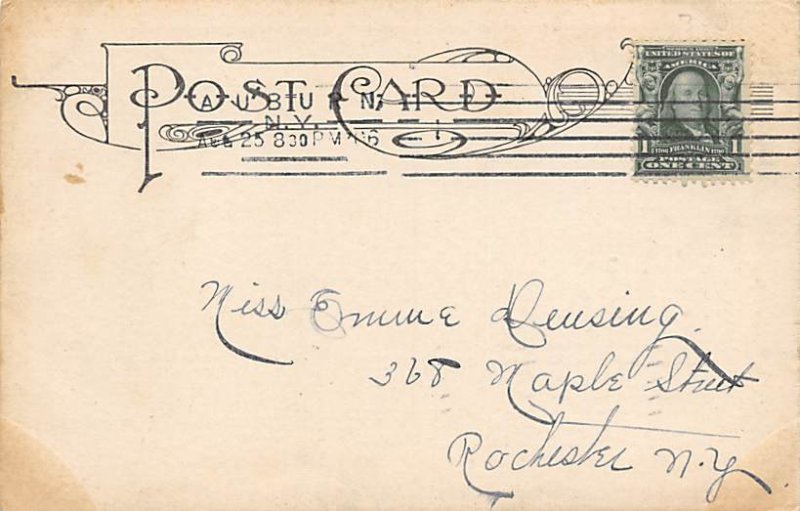 POST CARD
AUBURN
N.Y.
AUG 25 8 30 PM '06
UNITED STATES OF
AMERICA
1 FRANKLIN 1
POSTAGE
ONE CENT
Miss Emma Deusing.
368 Maple Street
Rochester N.Y.